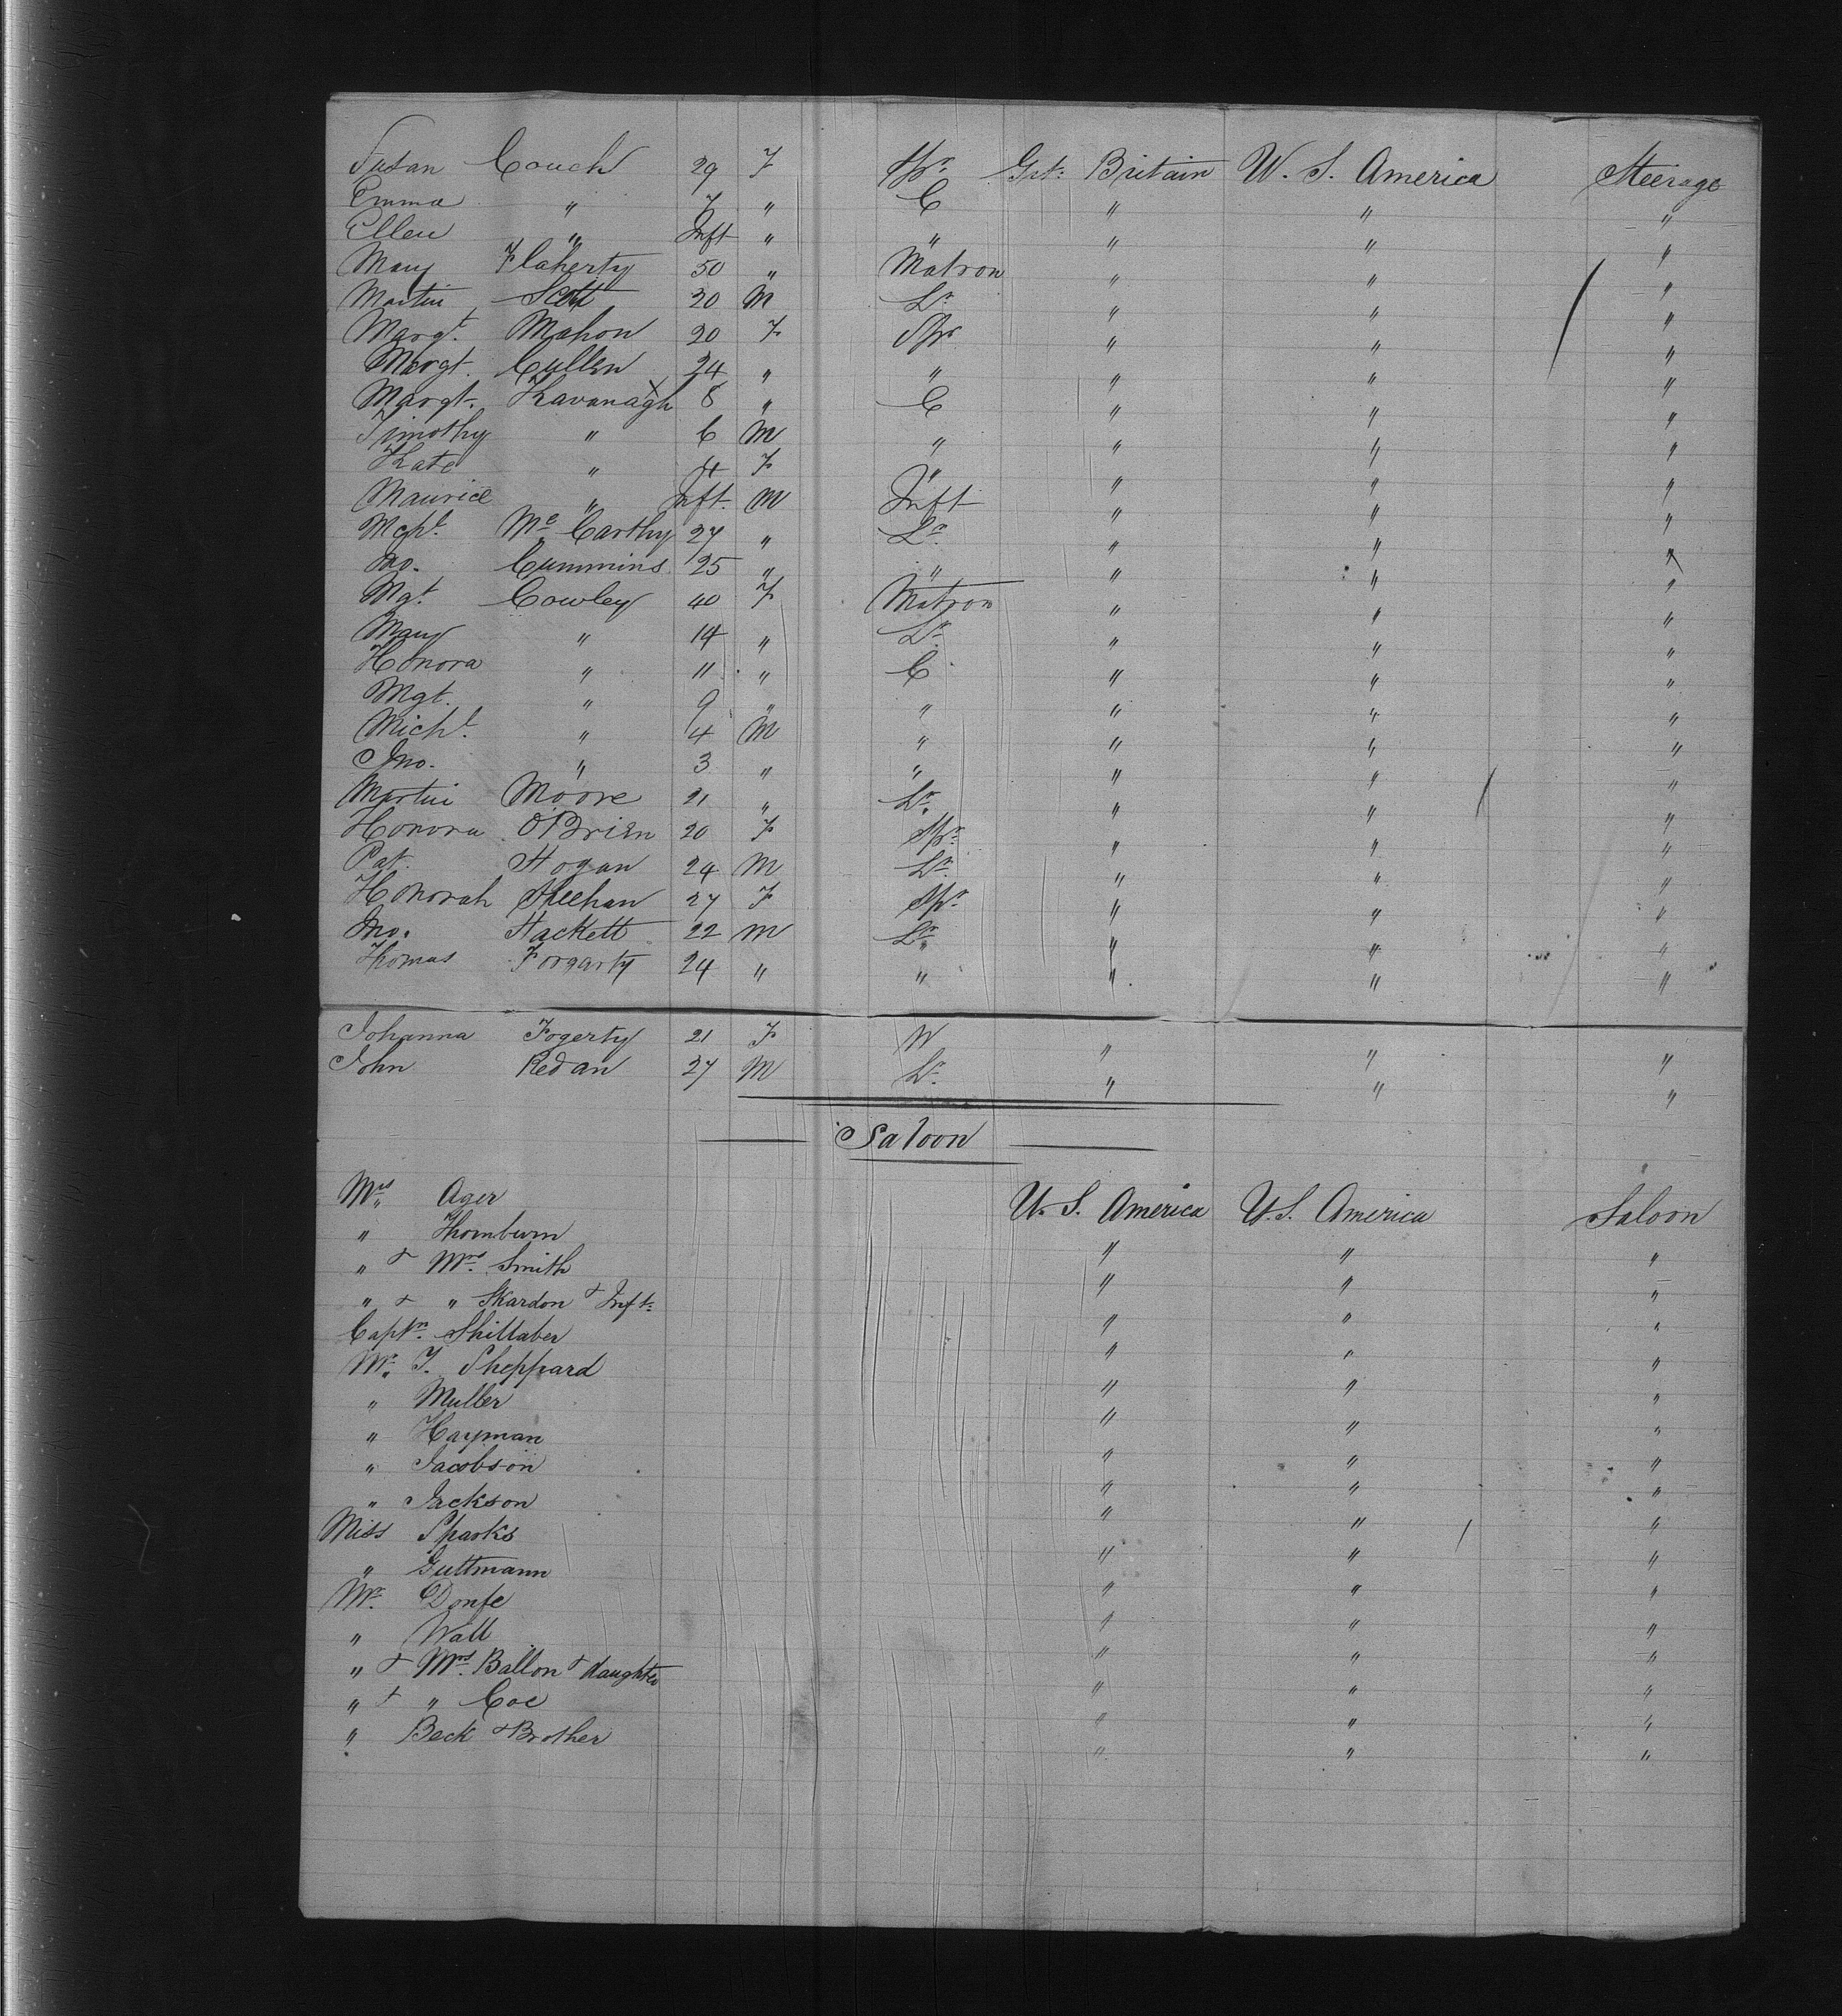 Susan Couch 29 F Spr. Grt. Britain U. S. America Steerage
Emma " 7 " C " " "
Ellen " Inft " " " " "
Mary Flaherty 50 " Matron " " "
Martin Scott 20 M Lr. " " "
Margt. Mahon 20 F Spr " " "
Margt. Cullen 24 " " " " "
Margt. Kavanagh 8 " C " " "
Timothy " 6 M " " " "
Kate " 4 F " " " "
Maurice " Inft. M Inft " " "
Mchl. Mc Carthy 27 " Lr. " " "
Jno. Cummins 25 " " " " "
Mgt. Cowley 40 F Matron " " "
Mary " 14 " Sr. " " "
Honora " 11 " C " " "
Mgt. " 9 " " " " "
Michl. " 4 M " " " "
Jno. " 3 " " " " "
Martin Moore 21 " Lr. " " "
Honora O'Brien 20 F Spr. " " "
Pat. Hogan 24 M Lr. " " "
Honorah Sheehan 27 F Spr. " " "
Jno. Hackett 22 M Lr. " " "
Thomas Forgarty 24 " " " " "
Johanna Fogerty 21 F W " " "
John Redan 27 M Lr. " " "
Saloon
Mrs. Ager U. S. America U. S. America Saloon
" Thornburn " " "
" & Mrs. Smith " " "
" & " Skardon & Inft. " " "
Captn. Shillaber " " "
Mr. T. Sheppard " " "
" Muller " " "
" Hayman " " "
" Jacobson " " "
" Jackson " " "
Miss Sparks " " "
" Guttmann " " "
Mr. Donfe " " "
" Wall " " "
" & Mrs. Ballon & daughter " " "
" & " Coe " " "
" Beck & Brother " " "